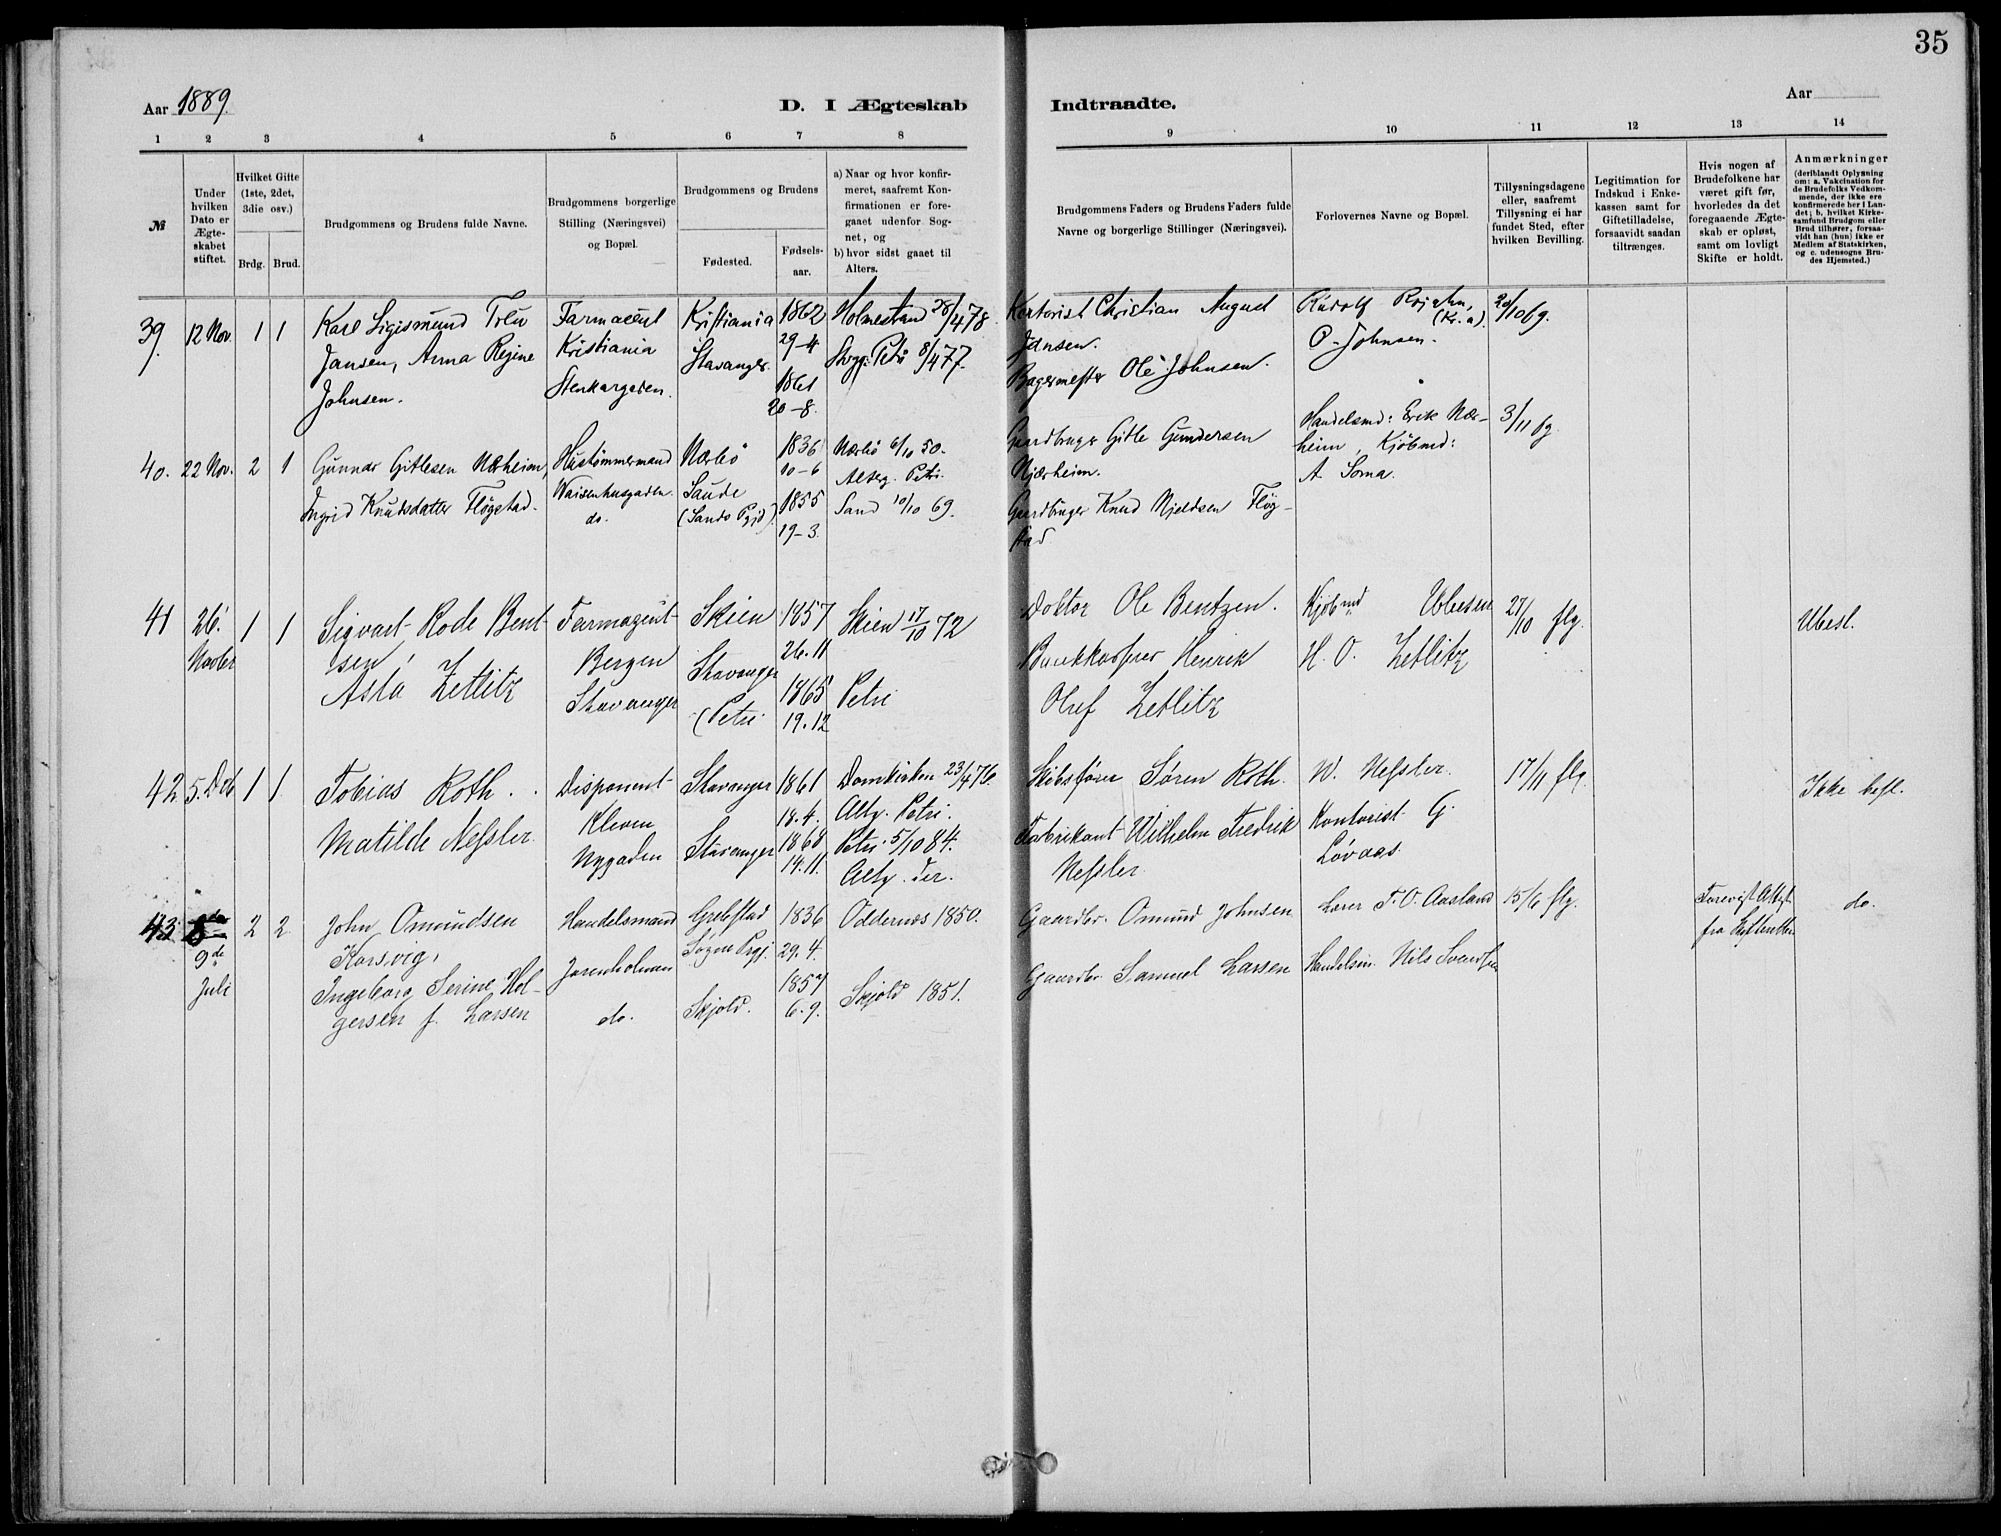 35
Aar 1889.
D. I Ægteskab Indtraadte.
Aar
1 2 3 4 5 6 7 8 9 10 11 12 13 14
№
Under
hvilken
Dato er
Ægte-
skabet
stiftet.
Hvilket Gifte
(1ste, 2det,
3die osv.)
Brdg. Brud.
Brudgommens og Brudens fulde Navne.
Brudgommens borgerlige
Stilling (Næringsvei)
og Bopæl.
Brudgommens og Brudens
Fødested.
Fødsels-
aar.
a) Naar og hvor konfir-
meret, saafremt Kon-
firmationen er fore-
gaaet udenfor Sog-
net, og
b) hvor sidst gaaet til
Alters.
Brudgommens Faders og Brudens Faders fulde
Navne og borgerlige Stillinger (Næringsvei).
Forlovernes Navne og Bopæl.
Tillysningsdagene
eller, saafremt
Tillysning ei har
fundet Sted, efter
hvilken Bevilling.
Legitimation for
Indskud i Enke-
kassen samt for
Giftetilladelse,
forsaavidt saadan
tiltrænges.
Hvis nogen af
Brudefolkene har
været gift før,
hvorledes da det
foregaaende Ægte-
skab er opløst,
samt om lovligt
Skifte er holdt.
Anmærkninger
(deriblandt Oplysning
om: a. Vakcination for
de Brudefolks Vedkom-
mende, der ikke ere
konfirmerede her i Lan-
det; b. hvilket Kirke-
samfund Brudgom eller
Brud tilhører, forsaa-
vidt han (hun) ikke er
Medlem af Statskirken,
og c. udensogns Bru-
des Hjemsted.)
39. 12 Nov. 1 1
Karl Sigismund Treu
Jansen, Anna Regine
Johnsen.
Farmaceut
Kristiania
Stenkargaden.
Kristiania
Stavanger.
1862
29-4
1861
20-8.
Holmestrand 28/4 78.
Petri 8/4 77.
Kontorist Christian August
Jansen.
Bagermester Ole Johnsen.
Rudolf
(Kr.a).
O. Johnsen.
20/10 69.
40. 22 Nov. 2 1
Gunnar Gitlesen Nærheim,
Ingrid Knudsdatter Fløgstad.
Hustømmermand
Waisenhusgaden.
do.
Nærbø
Saude
(Sands Pgjd)
1836
10-6
1855
19-3.
Nærbø 6/10 50.
Alterg. Petri.
Sand 10/10 69.
Gaardbruger Gitle Gundersen
Njærheim.
Gaardbruger Knud Njeldsen Fløg-
stad
Handelsmd: Erik Nær-
heim, Kjøbmd:
A Soma.
3/11 fg.
41 26. 1 1
Novbr
Sigvart Rode Bent-
sen,
Asta Zetlitz
Farmazeut
Bergen
Stavanger
Skien
Stavanger
(Petri
1857
26.11
1865
19.12
Skien 17/10 72
Petri
Doktor Ole Bentzen.
Bankkasserer Henrik
Oluf Zetlitz
Kjøbmd Ubesen
H. O. Zetlitz
27/10 flg.
Ubesl.
42 5. Deb 1 1
Tobias Roth.
Matilde Nessler.
Disponent
Kleven
Nygaden
Stavanger
Stavanger
1861
18.4.
1868
14.11.
Domkirken 23/4 76.
Altg. Petri.
Petri 5/10 84.
Altg. der.
Skibsfører Søren Roth.
Fabrikant Wilhelm Fredrik
Nessler
W. Nessler.
Kontorist G.
Løvaas.
17/11 flg.
Ikke besl.
43 2 2
9de
Juli
John Omundsen
Korsvig,
Ingeborg Serine Hol-
gersen f. Larsen
Handelsmand
Jorenholmen
do.
Grebstad
Søgne Prgj.
Skjold.
1836
29.4.
1857
6.9.
Oddernes 1850.
Skjold 1851.
Gaardbr. Omund Johnsen
Gaardbr. Samuel Larsen
Lærer T. O. Aasland
Handelsm. Nils Svendsen
15/6 flg.
Forevist Attest
fra Skifteretten
do.